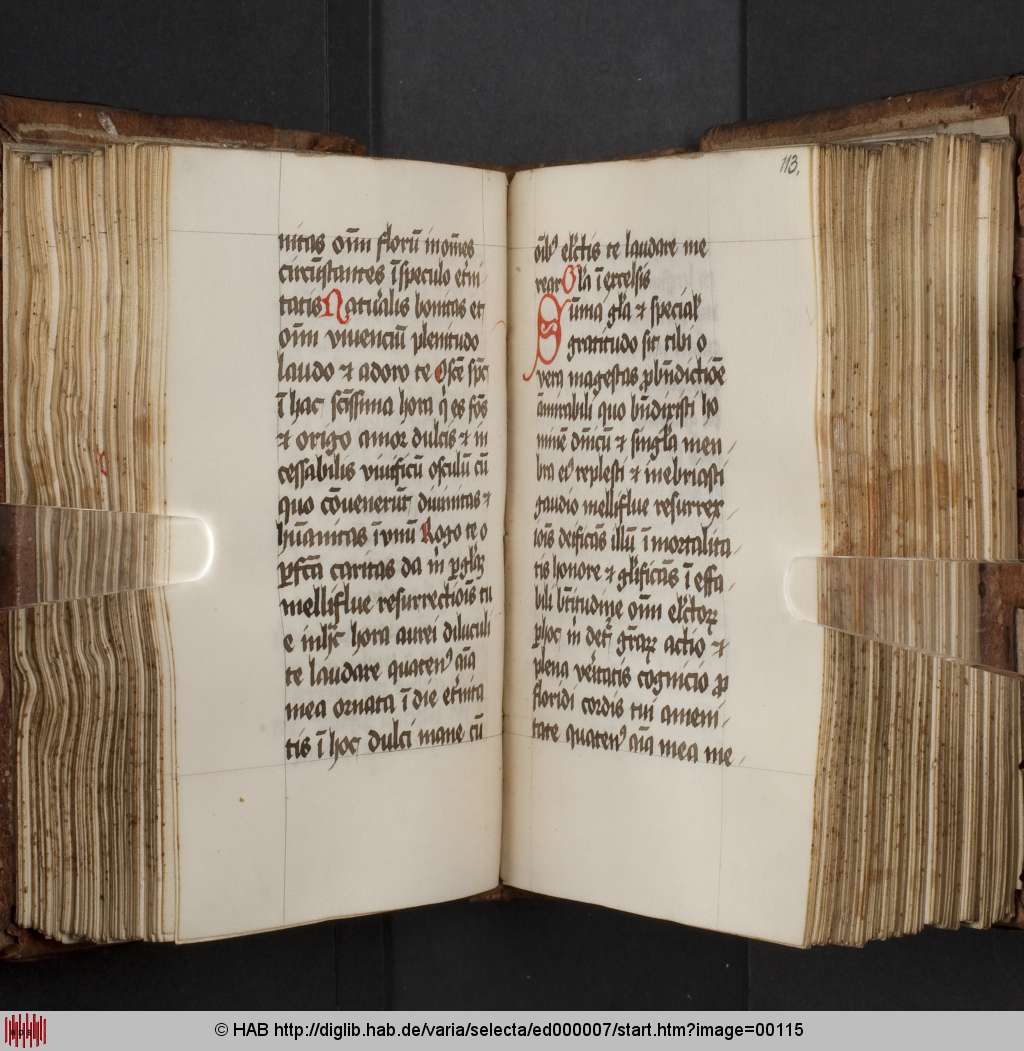 nitas om̄i florū in om̄es
circūstantes ī speculo et̄ni
tatis Naturalis bonitas et
om̄i vivenciū plenitudo
laudo et adoro te Osc̄e sp̄c
ī hac sc̄issima hora q̄ es fōs
et origo amor dulcis et in
cessabilis vivificū osculū cū
quo cōvenerūt divinitas et
hūanitas ī vnū Rogo te o
ꝑfc̄a caritas da m̄ ꝑ gl̄aꝫ
melliflue resurrectiōis tu
e in h̄c hora aurei diluculi
te laudare quaten᷒ aīa
mea ornata ī die et̄nita
tis ī hoc dulci mane cū
113.
oīb᷒ el̄ctis te laudare me
reat Gl̄a ī excelsis
Sūma gl̄a et special̄
gratitudo sit tibi o
vera magestas ꝓ bn̄dictiōe
āmirabili quo bn̄dixisti ho
minē dīnicū et singl̄a men
bra ei᷒ replesti et inebriasti
gaudio melliflue resurrex
iōis deificās illū ī mortalita
tis honore et gl̄ificās ī effa
bili bt̄itudine om̄i el̄ctoꝝ
ꝓ hoc m̄ det᷒ gr̄aꝝ actio et
plena vēitatis cognicio ꝓ
floridi cordis tui ameni
tate quaten᷒ aīa mea me
© HAB http://diglib.hab.de/varia/selecta/ed000007/start.htm?image=00115